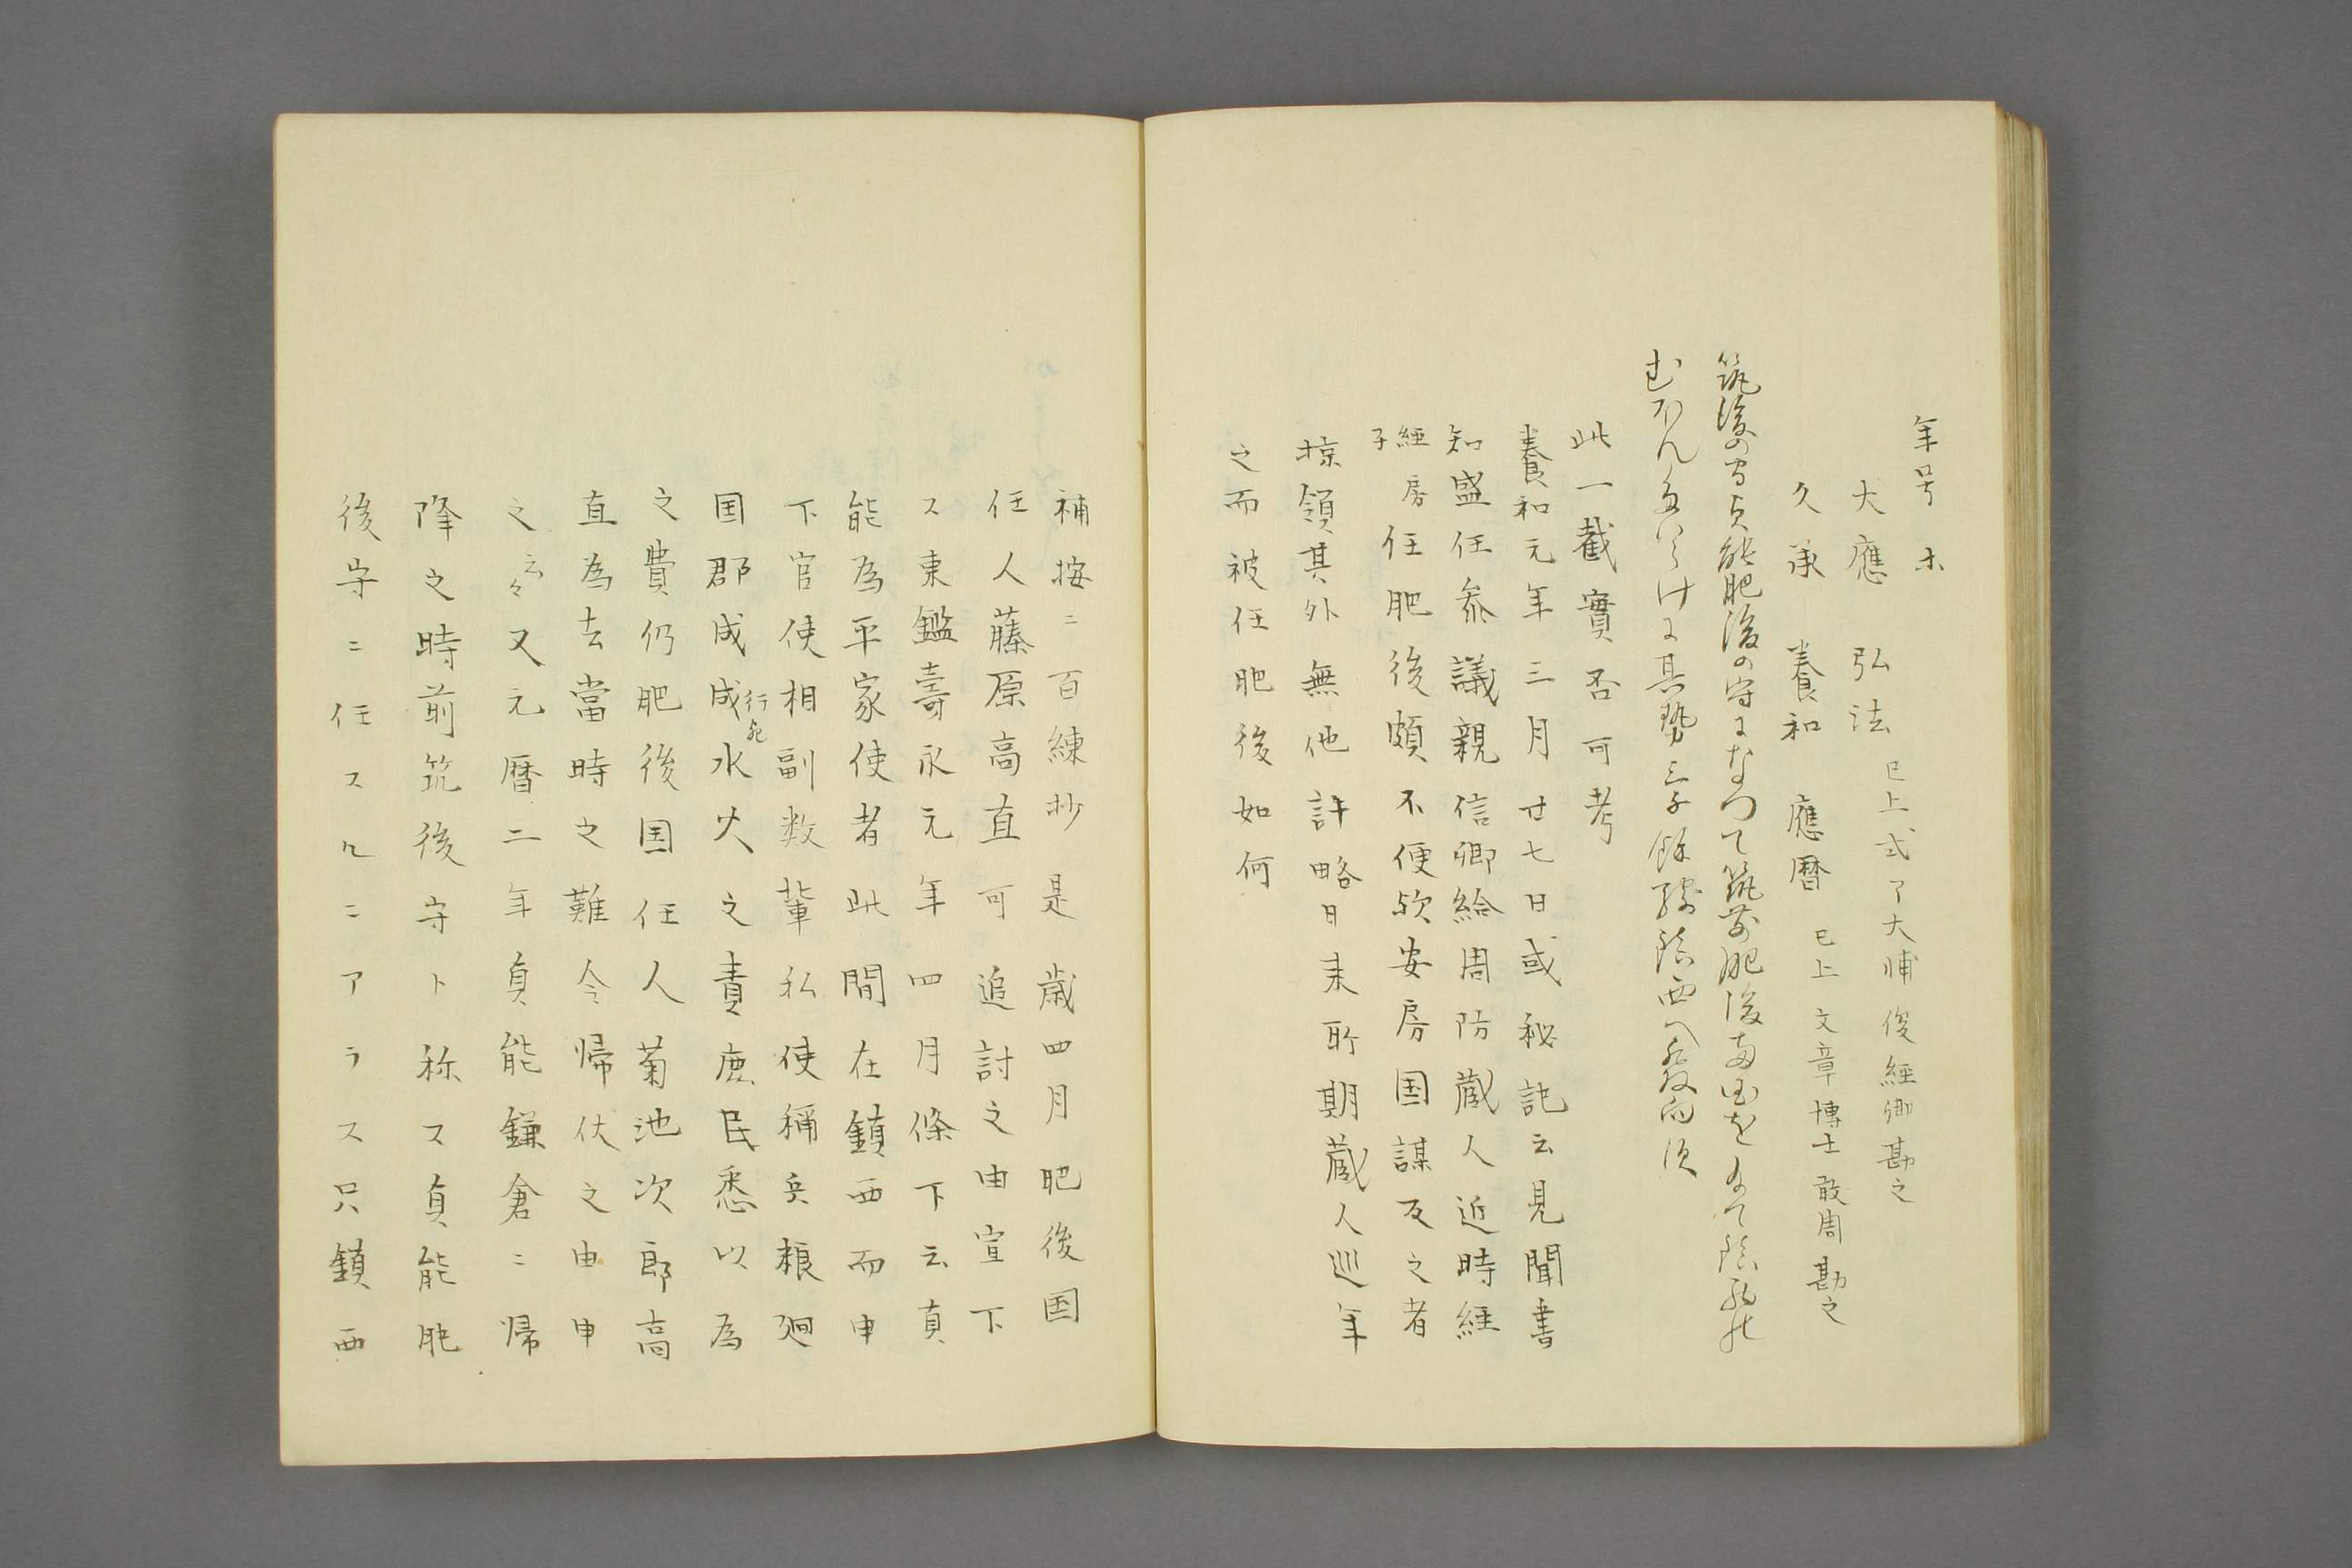 年号ホ
大應　弘法　已上式了大輔俊經卿勘之
久承　養和　應暦　已上文章博士敢周勘之
筑後の守貞能肥後の守になつて筑前肥後両国を
むほん其勢三千餘騎鎮西へ發向
此一截實否可考
養和元年三月廿七日或秘記云見聞書
知盛任叅議親信卿給周防蔵人近時経
經房子任肥後頗不便歟安房国謀反之者
掠領其外無他許略日来所期蔵人巡年
之而被任肥後如何
補按ニ百練抄是歳四月肥後国
住人藤原高直可追討之由宣下
ス東鑑壽永元年四月條下云貞
能為平家使者此間在鎮西而申
下官使相副数輩私使稱兵粮廻
国郡成成行宛水火之責庶民悉以為
之費仍肥後国住人菊池次郎高
直為去當時之難令帰伏之由申
之云々又元暦二年貞能鎌倉ニ帰
降之時前筑後守ト称ス貞能肥
後守ニ任スルニアラス只鎮西